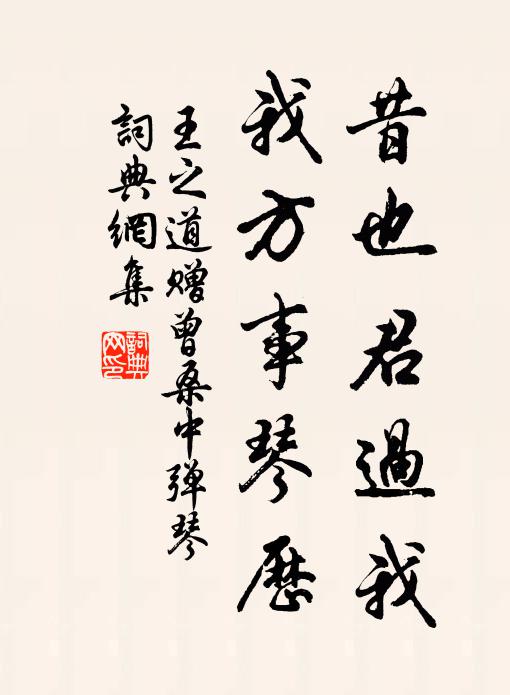 昔也君過我
我方事琴歷
王之道贈曾桑中弹琴
詞典網集
詞典网印